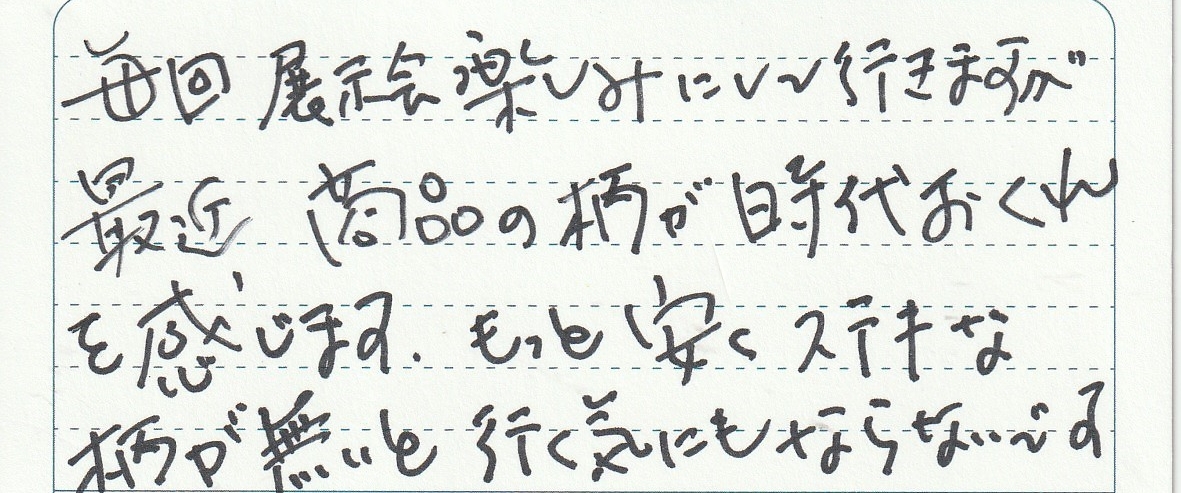 毎回 展示会楽しみにして行きますが
最近 商品の柄が時代おくれ
を感じます. もっと安くステキな
柄が無いと 行く気にもならないです